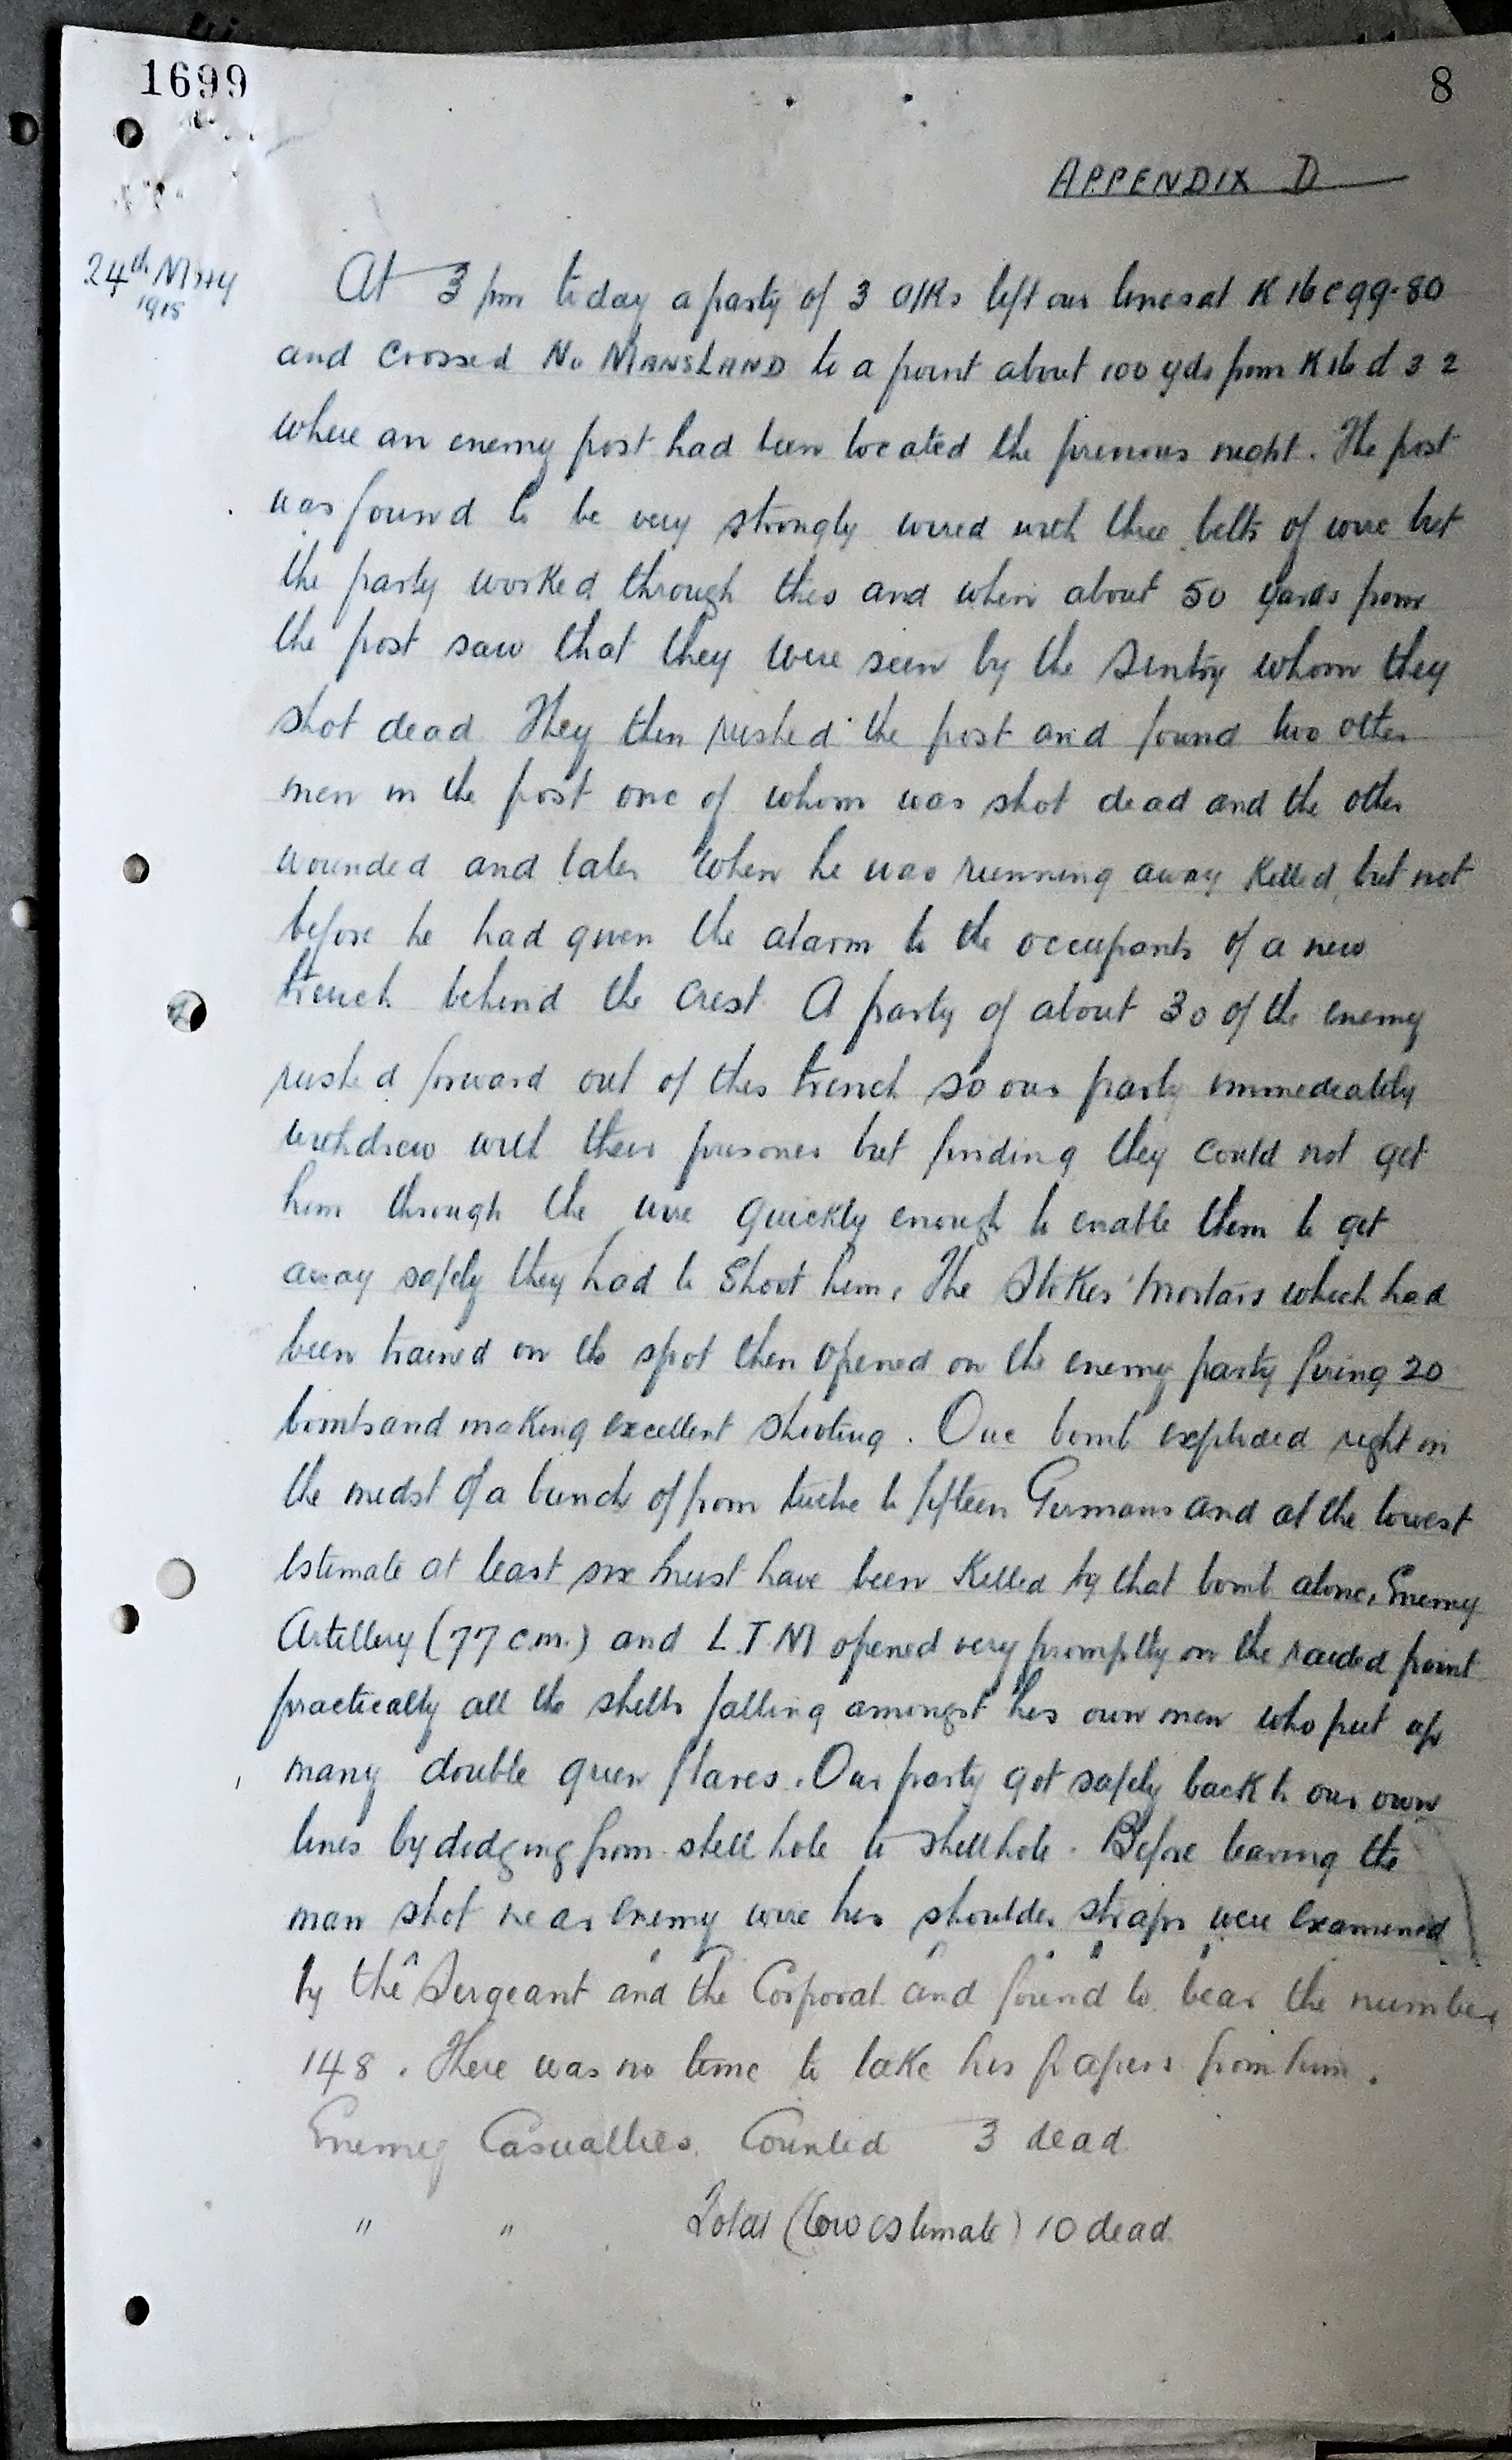 1699
8
APPENDIX D
24th MAY
1918
At 3 pm today a party of 3 O/Rs left our lines at K 16 c 99.80
and crossed No MANSLAND to a point about 100 yds from K 16 d 3 2
where an enemy post had been located the previous night. The post
was found to be very strongly wired with three belts of wire but
the party worked through this and when about 50 yards from
the post saw that they were seen by the Sentry whom they
shot dead. They then rushed the post and found two other
men in the post one of whom was shot dead and the other
wounded and later when he was running away killed, but not
before he had given the alarm to the occupants of a new
trench behind the crest. A party of about 30 of the enemy
rushed forward out of this trench so our party immediately
withdrew with their prisoner but finding they could not get
him through the wire quickly enough to enable them to get
away safely they had to shoot him. The Stokes' Mortars which had
been trained on the spot then opened on the enemy party firing 20
bombs and making excellent shooting. One bomb exploded right in
the midst of a bunch of from twelve to fifteen Germans and at the lowest
estimate at least six must have been killed by that bomb alone. Enemy
Artillery (77 c.m.) and L.T.M opened very promptly on the raided point
practically all the shells falling amongst his own men who put up
many double green flares. Our party got safely back to our own
lines by dodging from shell hole to shellhole. Before leaving the
man shot near enemy wire his shoulder straps were examined
by the Sergeant and the Corporal and found to bear the number
148. There was no time to take his papers from him.
Enemy Casualties. Counted 3 dead
" " Total (low estimate) 10 dead.